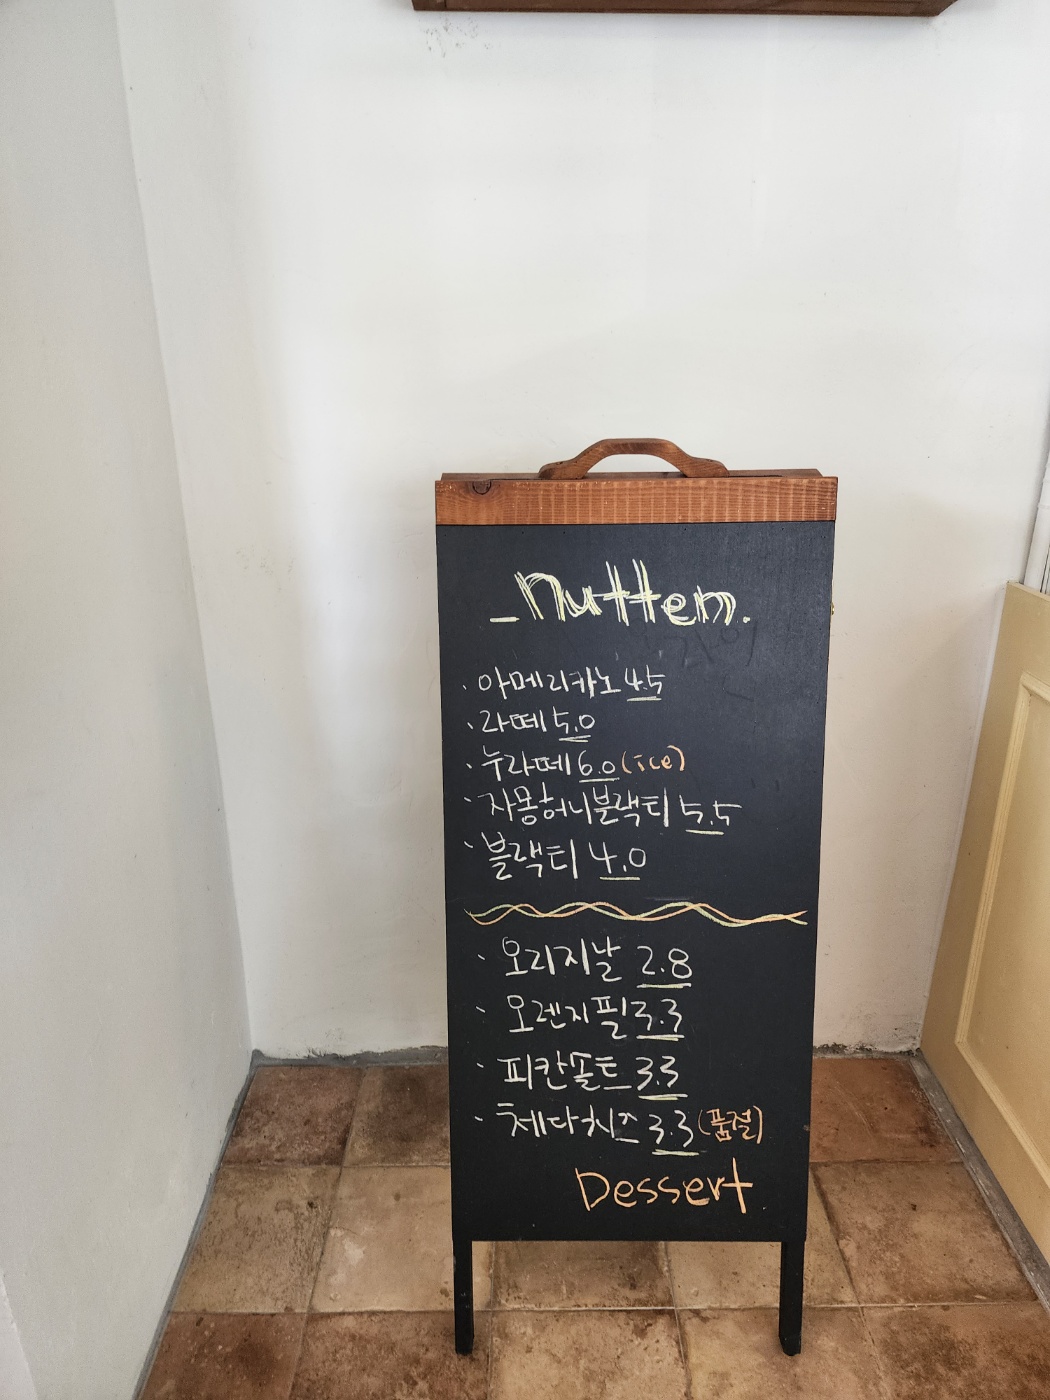 _nuttem.
· 아메리카노 4.5
· 라떼 5.0
· 누라떼 6.0 (ice)
· 자몽허니블랙티 5.5
· 블랙티 4.0
· 오리지날 2.8
· 오렌지필 3.3
· 피칸솔트 3.3
· 체다치즈 3.3 (품절)
Dessert